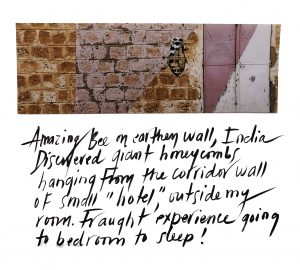 Amazing Bee on earthen wall, India
Discovered giant honeycombs
hanging from the corridor wall
of small "hotel", outside my
room. Fraught experience going
to bedroom to sleep!